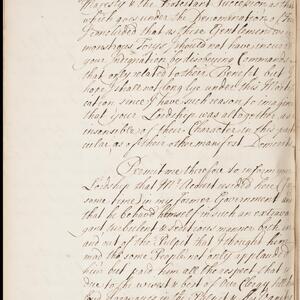 Majesty & the Protestant Succession, as
which goes under the Denomination of
I concluded that as these Gentlemen
monstrous Torys, I should not have incurr'd
your Indignation by disobeying Commands
that only related to their Benefit, but
hope I shall not long lye under this Mortifi
cation since I have such reason to imagine
that your Lordship was altogether as
insensible of their Character in this parti
cular, as of their other manifest Demerits
Permit me therefore to inform your
Lordship that Mr. resided here
some time in my former Government and
that he behav'd himself in such an extrava
gant, turbulent & seditious manner both in
and out of the Pulpit that I thought him
mad tho' some People not only applauded
him but paid him all the respect that
due to the worst & best of Our Clergy
his in the Pulpit